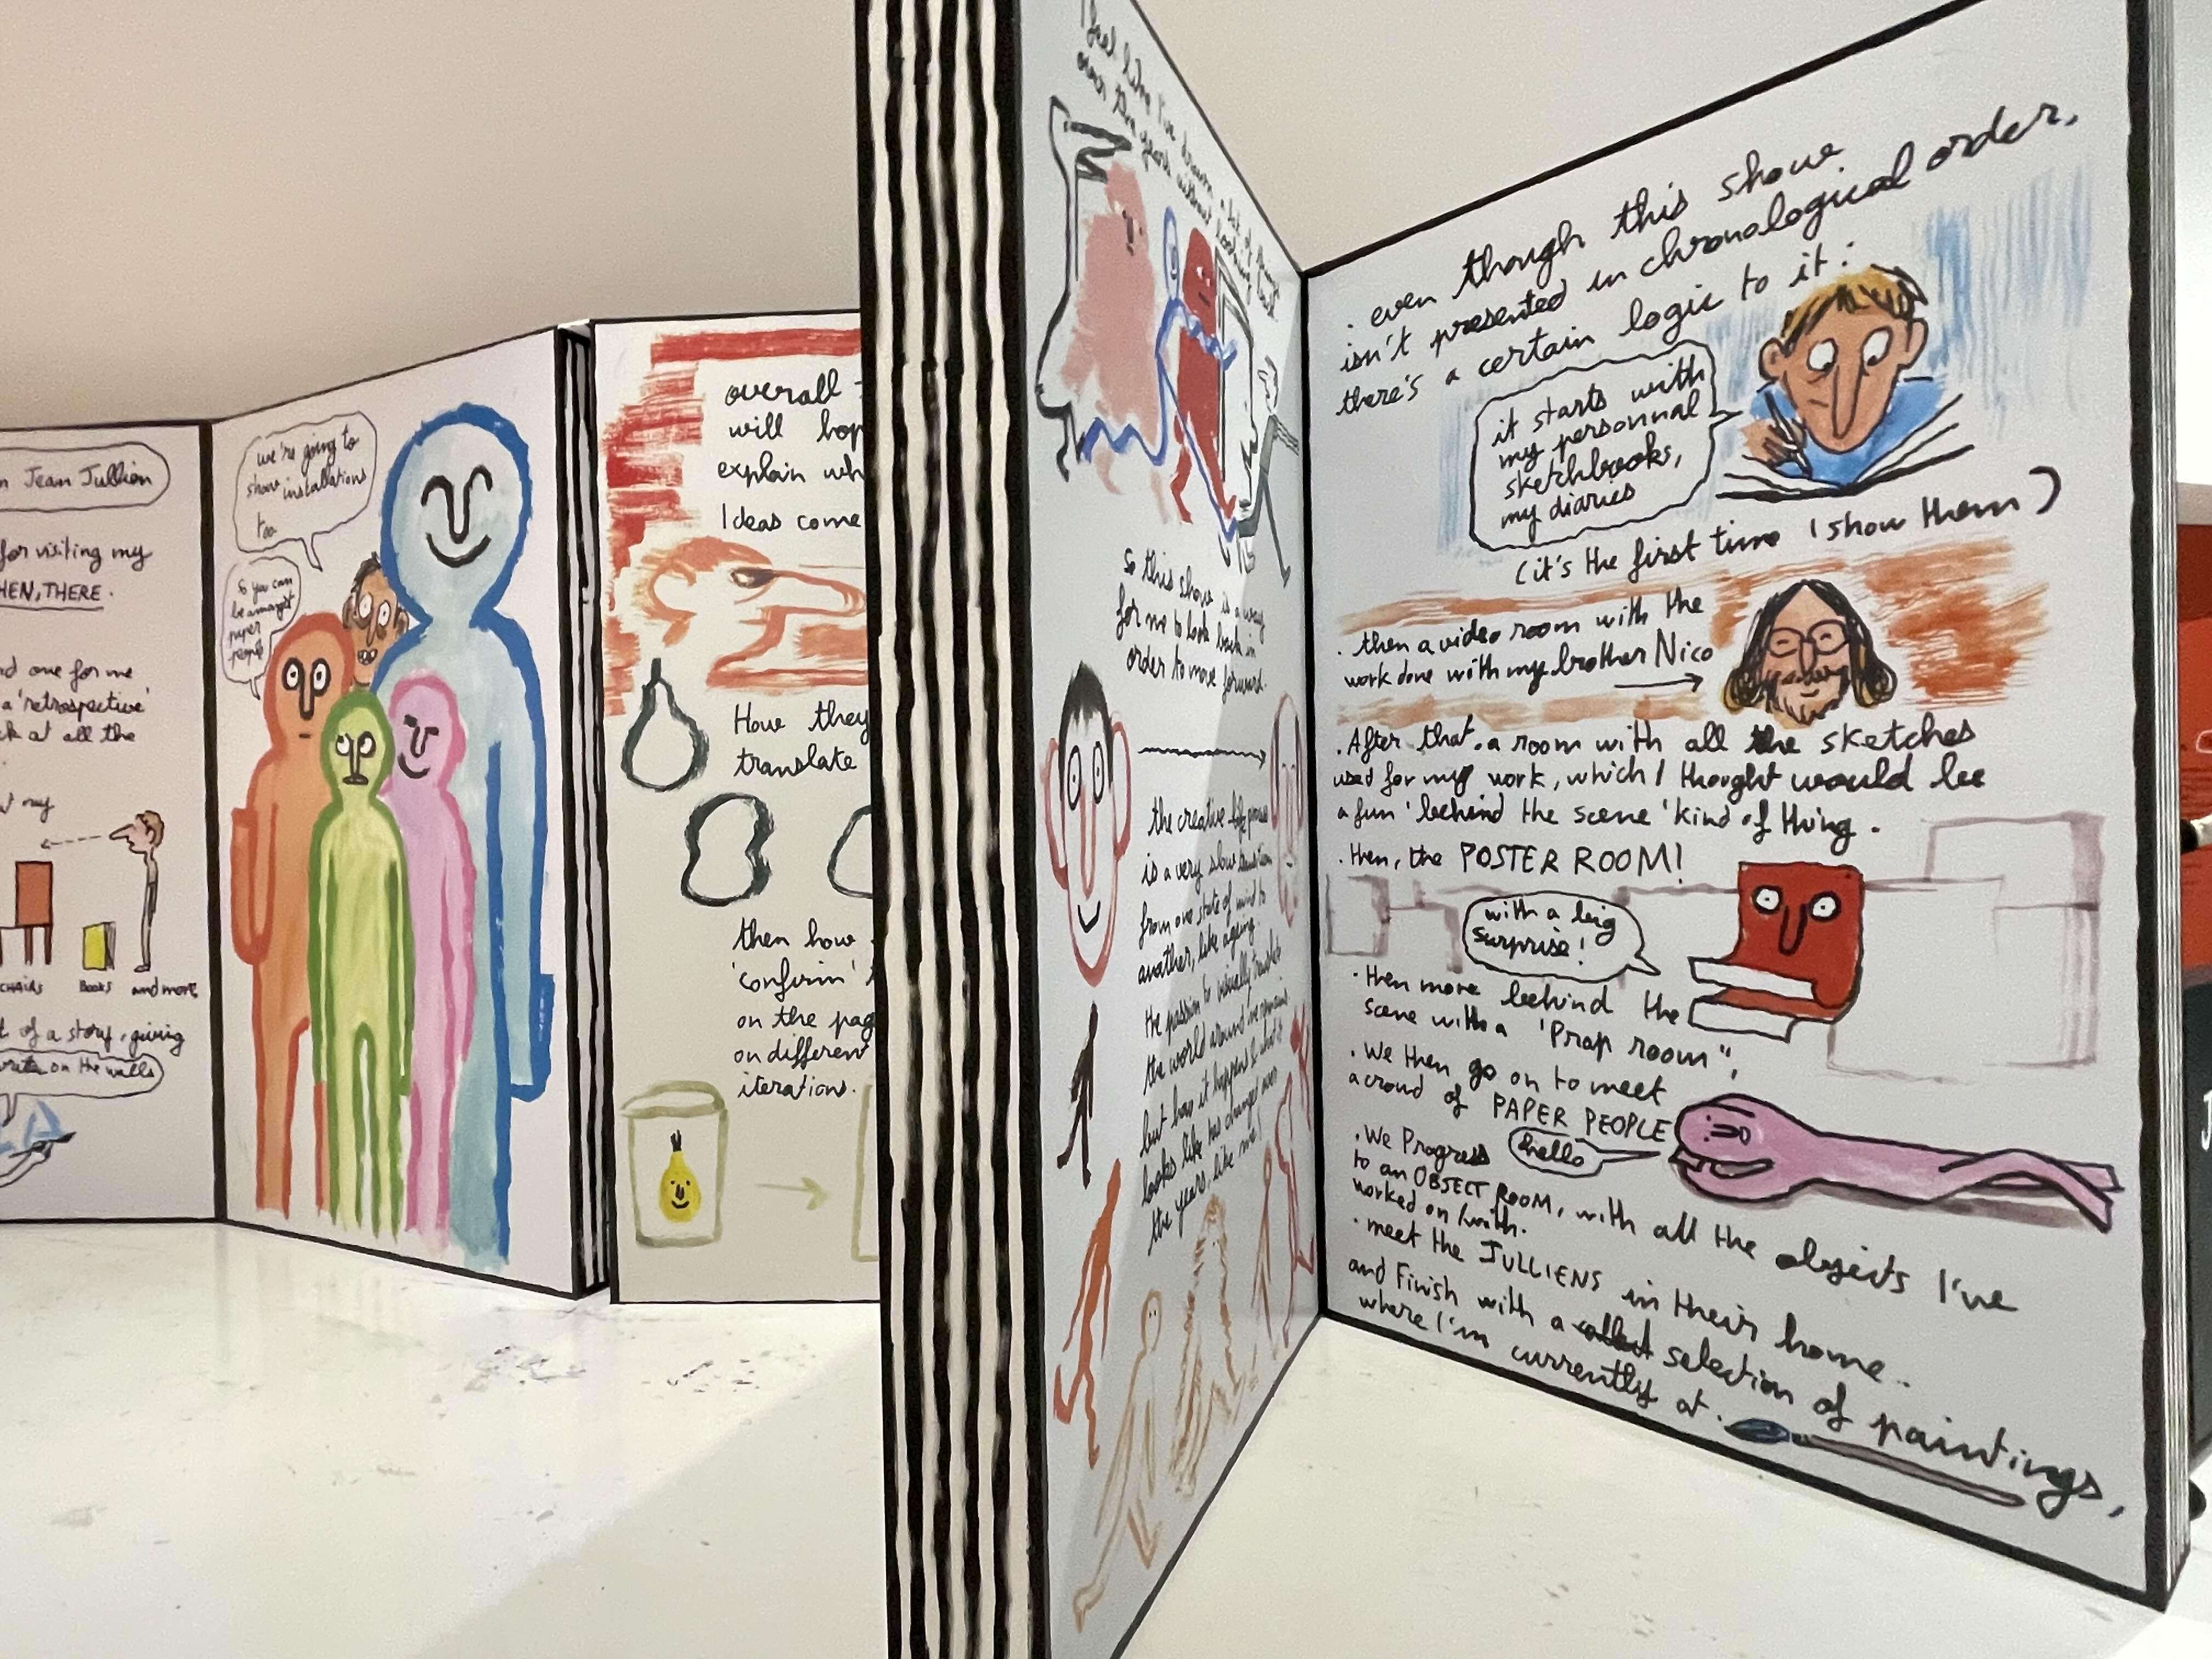 n Jean Jullien
for visiting my
HEN, THERE.
nd one for me
a 'retrospective'
ck at all the
my
CHAIRS
BOOKS
and more
t of a story, giving
write on the walls
we're going to
show installations
too
So you can
be amongst
paper
people
overall
will hop
explain wh
Ideas come
How they
translate
then how
'confirm'
on the pag
on different
iterations.
I feel like I've
So this show is a way
for me to look back in
order to move forward.
the creative process
is a very slow transition
from one state of mind to
another, like ageing.
the passion to visually translate
the world around me remains
but how it happens & what it
looks like has changed over
the years, like me!
. even though this show
isn't presented in chronological order,
there's a certain logic to it :
it starts with
my personnal
sketchbooks,
my diaries
(it's the first time I show them)
. then a video room with the
work done with my brother Nico
. After that, a room with all the sketches
used for my work, which I thought would be
a fun 'behind the scene' kind of thing.
. then, the POSTER ROOM!
with a big
surprise!
. then more behind the
scene with a 'Prop room",
. We then go on to meet
a croud of PAPER PEOPLE
hello
. We Progress
to an OBJECT ROOM, with all the objects I've
worked on/with.
. meet the JULLIENS in their home..
and Finish with a selection of paintings,
where I'm currently at.